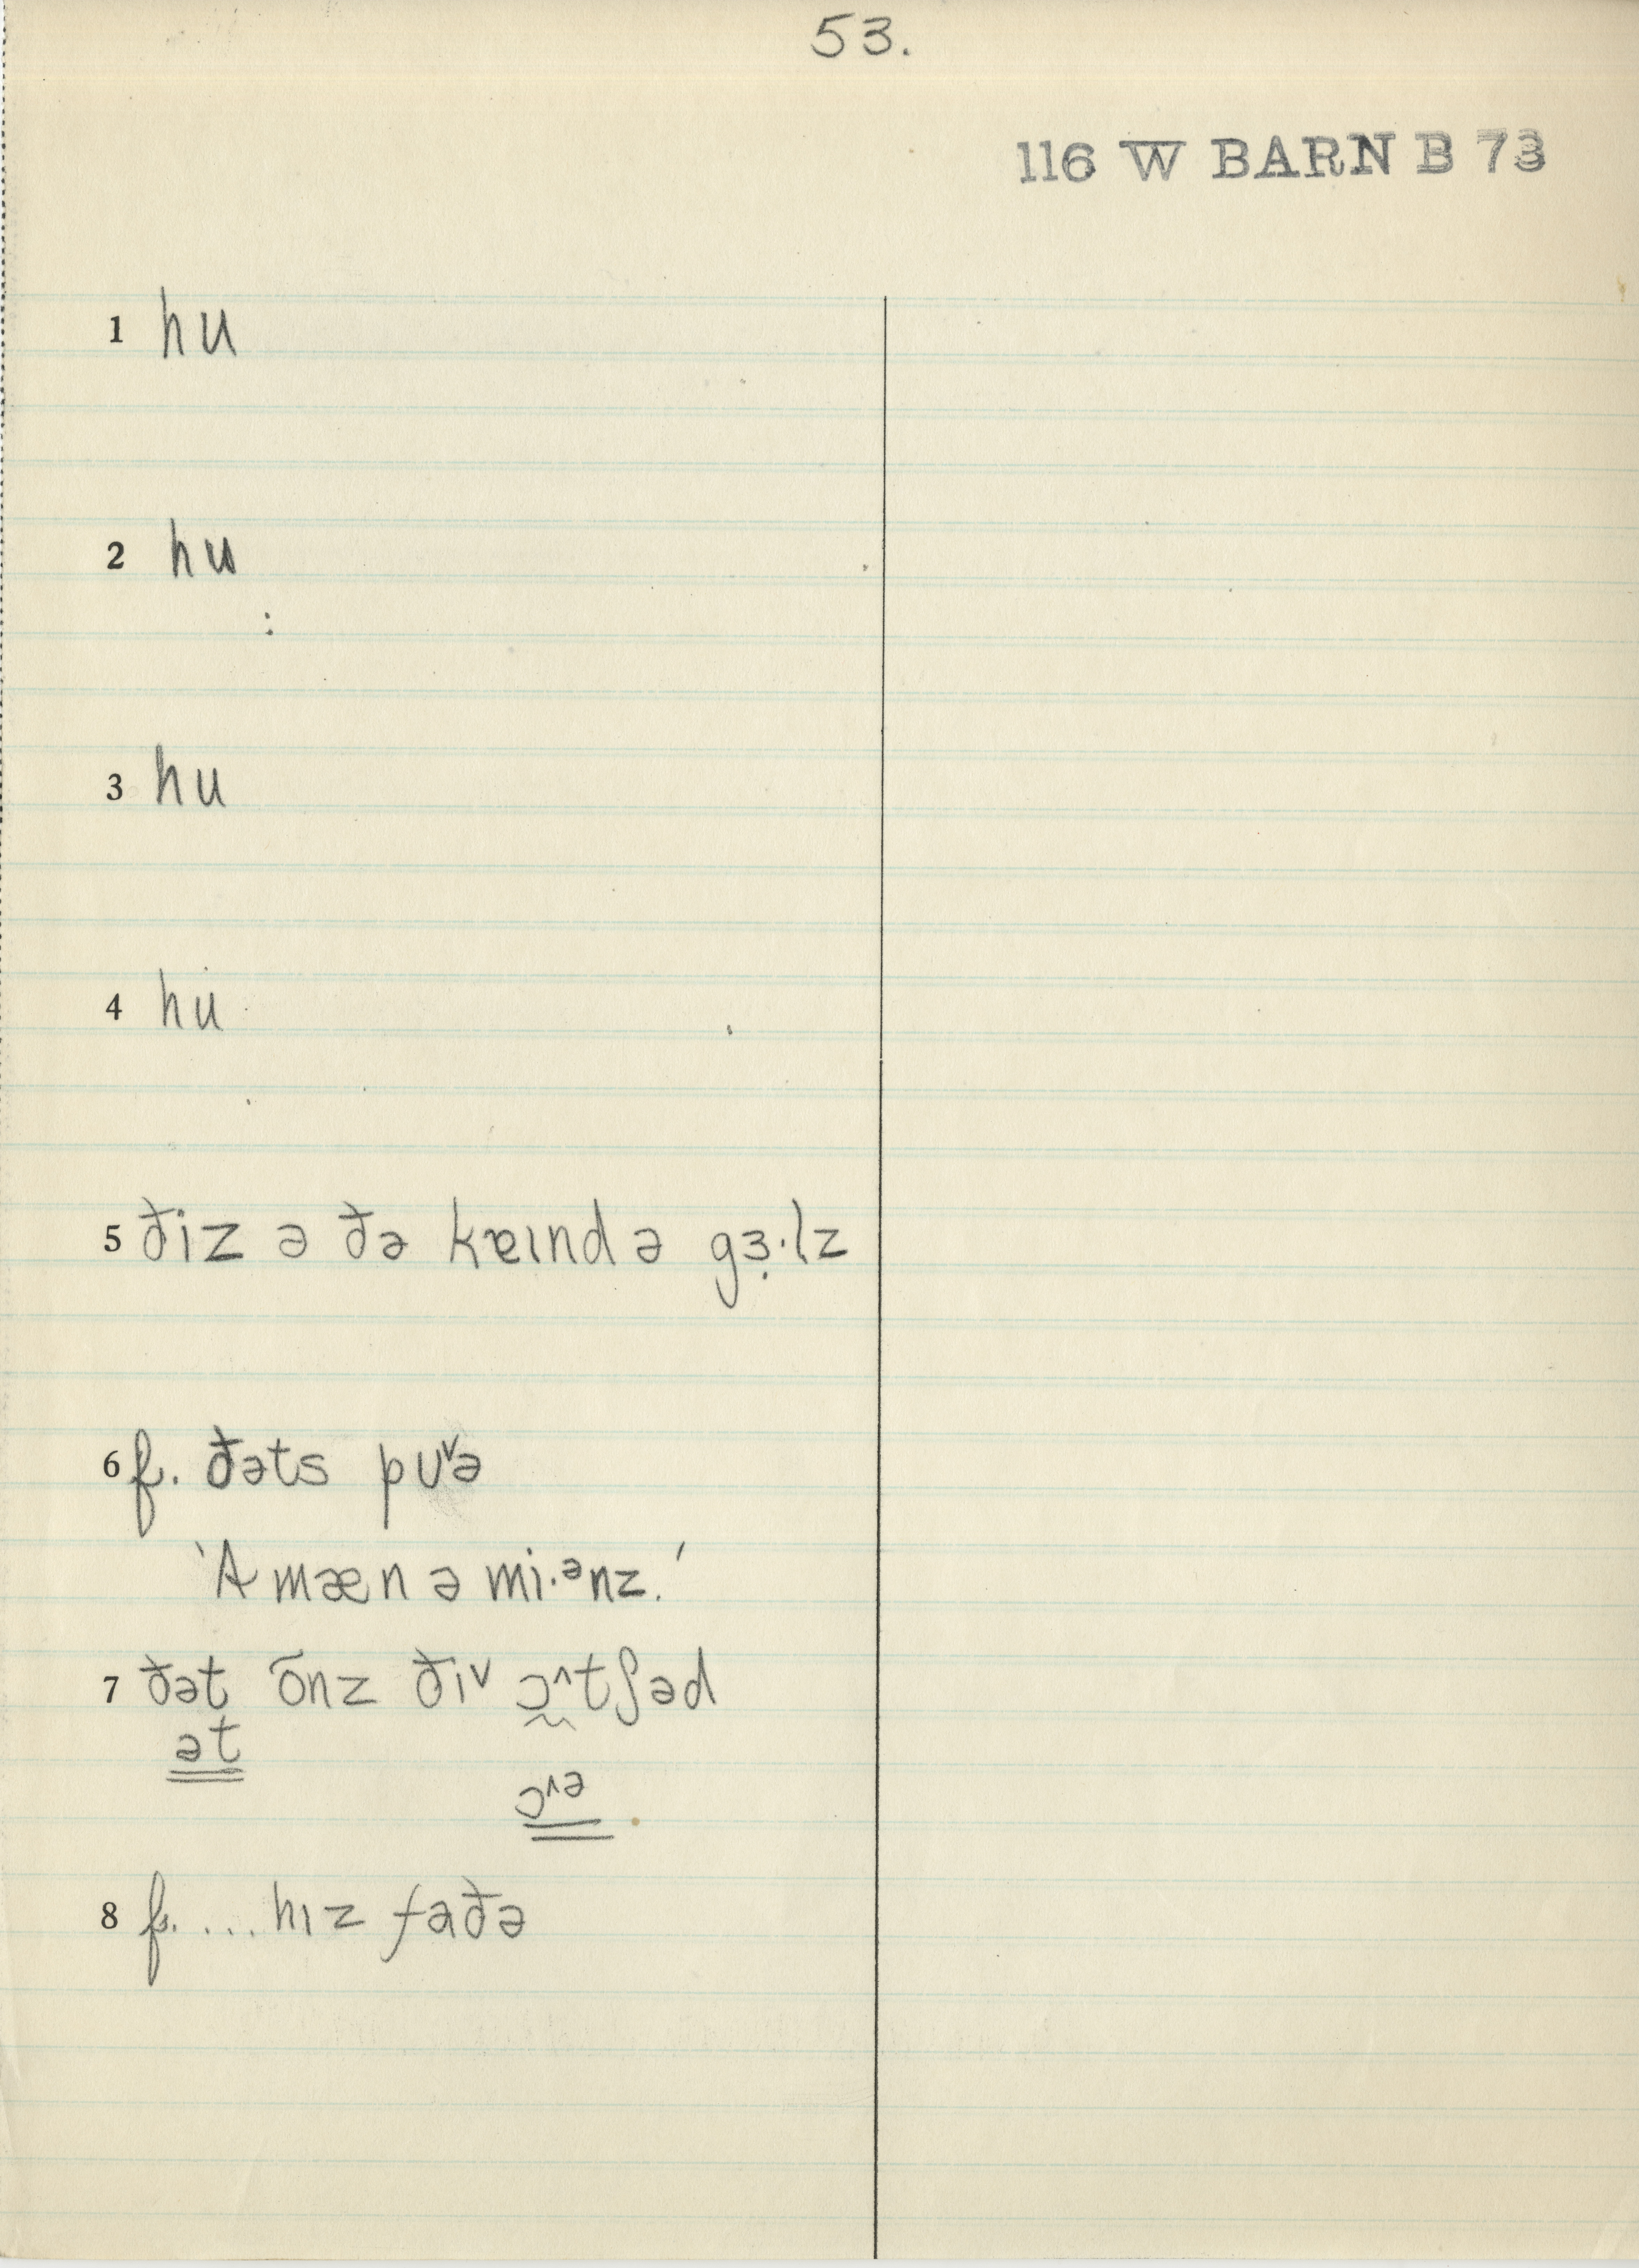 53.
116 W BARN B 73
1 hu
2 hu
:
3 hu
4 hu
5 ðiz ə ðə kɐɪnd ə gɜ̣·lz
6 f. ðəts pʊ˅ə
'A mæn ə mi·ᵊnz.'
7 ðət õnz ðɪ˅ ɔ˄tʃəd
ət
ɔ˄ə
8 f. ... hɪz faðə